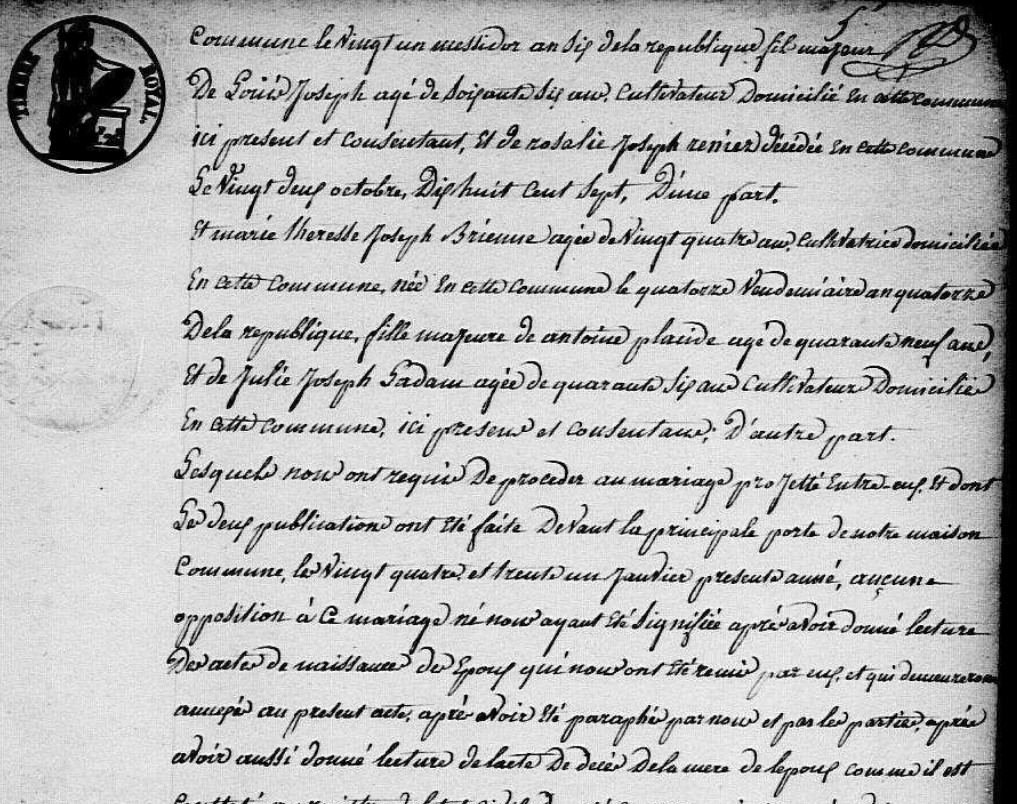 TIMBRE ROYAL.
5
Commune le Vingt un messidor an Six de la republique fils majeur
De Louis Joseph agé de Soixante Six ans, Cultivateur Domicilié En cette commune
ici present et Consentant, Et de rosalie Joseph reniez décédée En cette commune
Le Vingt deux octobre, Dix huit Cent Sept, D'une part.
Et marie theresse Joseph Brienne agée de Vingt quatre ans, Cultivatrice domiciliée
En cette Commune, née En cette Commune le quatorze Vendemiaire an quatorze
De la republique, fille majeure de antoine placide agé de quarante neuf ans,
Et de Julie Joseph Ladam agée de quarante Six ans Cultivateurs Domiciliés
En cette Commune, ici presens et Consentans, D'autre part.
Lesquels nous ont requis De proceder au mariage projetté Entre-eux, Et dont
Les deux publications ont été faites Devant la principale porte de notre maison
Commune, les Vingt quatre et trente un Janvier presente année, aucune
opposition à Ce mariage ne nous ayant été Signifiée après avoir donné lecture
Des actes de naissance des Epoux qui nous ont été remis par eux, et qui demeureront
annexés au present acte, après avoir été paraphés par nous et par les parties, après
avoir aussi donné lecture de lacte De décès De la mere de lepoux comme il est